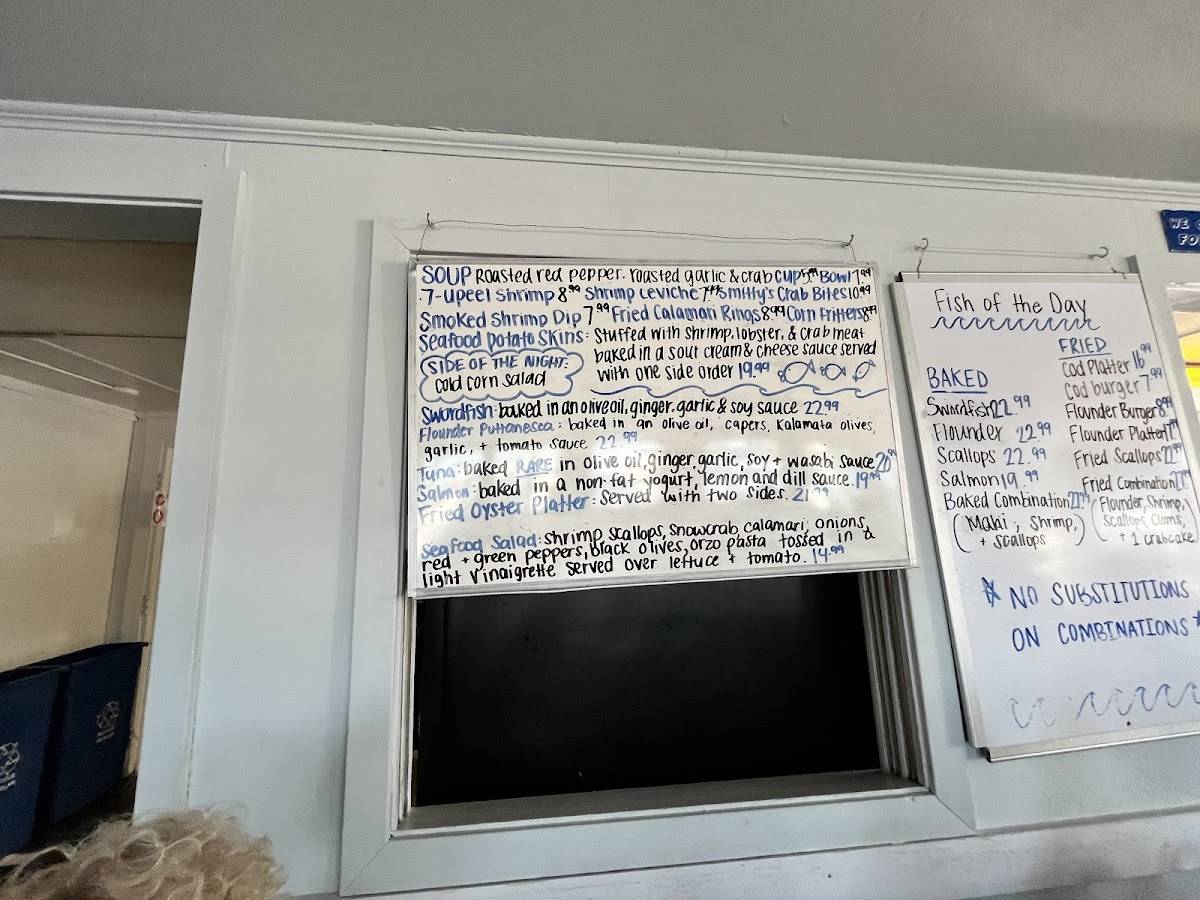 SOUP Roasted red pepper. roasted garlic & crab CUP 5.99 Bowl 7.99
7-Upeel Shrimp 8.99 Shrimp Ceviche 7.99 Smitty's Crab Bites 10.99
Smoked Shrimp Dip 7.99 Fried Calamari Rings 8.99 Corn Fritters 8.99
Seafood Potato Skins: Stuffed with Shrimp, lobster, & Crab meat
baked in a sour cream & cheese sauce served
with one side order 19.99
SIDE OF THE NIGHT:
cold corn salad
Swordfish: baked in an olive oil, ginger, garlic & soy sauce 22.99
Flounder Puttanesca: baked in an olive oil, capers, Kalamata olives,
garlic, + tomato sauce 22.99
Tuna: baked RARE in olive oil, ginger, garlic, soy + wasabi sauce
Salmon: baked in a non-fat yogurt, lemon and dill sauce. 19.99
Fried Oyster Platter: Served with two sides. 21.99
Seafood Salad: shrimp scallops, snowcrab, calamari, onions,
red + green peppers, black olives, orzo pasta tossed in a
light vinaigrette served over lettuce + tomato. 14.99
Fish of the Day
BAKED
Swordfish 22.99
Flounder 22.99
Scallops 22.99
Salmon 19.99
Baked Combination
(Mahi, Shrimp,
+ scallops)
FRIED
Cod Platter 16.99
Cod burger 7.99
Flounder Burger 8.99
Flounder Platter
Fried Scallops
Fried Combination
(Flounder, Shrimp,
Scallops, Clams,
+ 1 crabcake)
* NO SUBSTITUTIONS
ON COMBINATIONS *
WE
FO